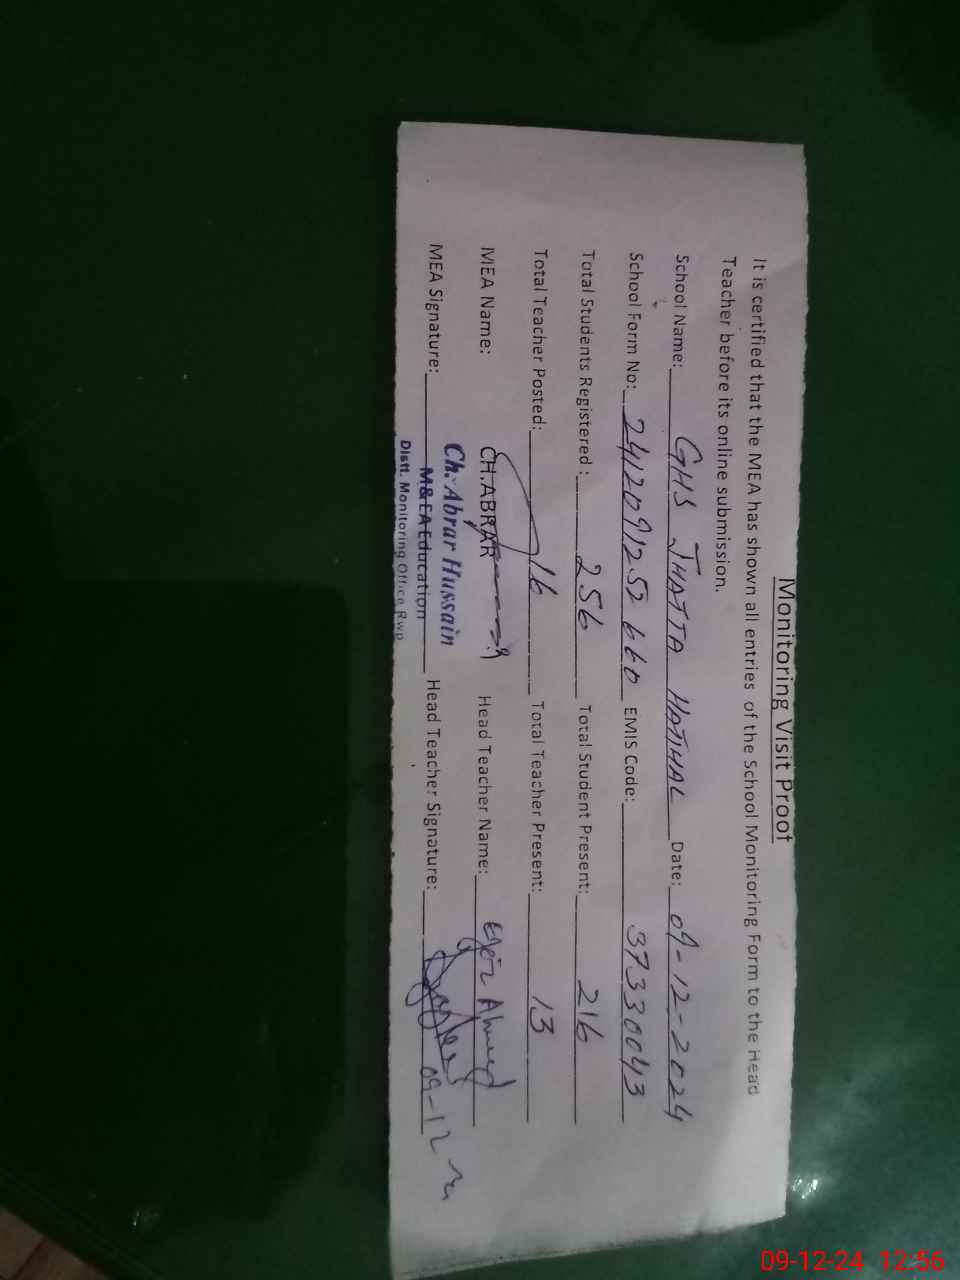 Monitoring Visit Proof
It is certified that the MEA has shown all entries of the School Monitoring Form to the Head
Teacher before its online submission.
School Name: GHS JHATTA HATHIAL Date: 09-12-2024
School Form No: 2412091252660 EMIS Code: 37330043
Total Students Registered: 256 Total Student Present: 216
Total Teacher Posted: 16 Total Teacher Present: 13
MEA Name: CH.ABRAR Head Teacher Name: Ahmed
Ch. Abrar Hussain
MEA Signature: M&EA Education Head Teacher Signature: 09-12
Distt. Monitoring Office Rwp
09-12-24 12:56